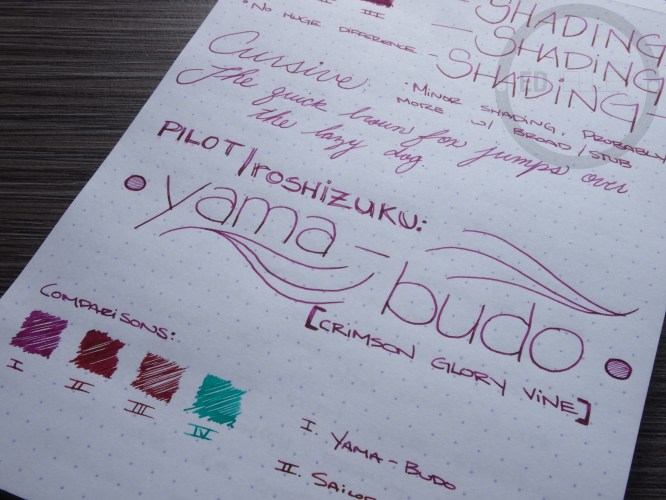 II III
- SHADING
• NO HUGE DIFFERENCE - SHADING
- SHADING
Cursive: • MINOR SHADING, PROBABLY
MORE W/ BROAD/STUB
The quick brown fox jumps over
the lazy dog.
PILOT/IROSHIZUKU:
yama-
budo
[CRIMSON GLORY VINE]
COMPARISONS:
I II III IV
I. YAMA-BUDO
II. SAILOR